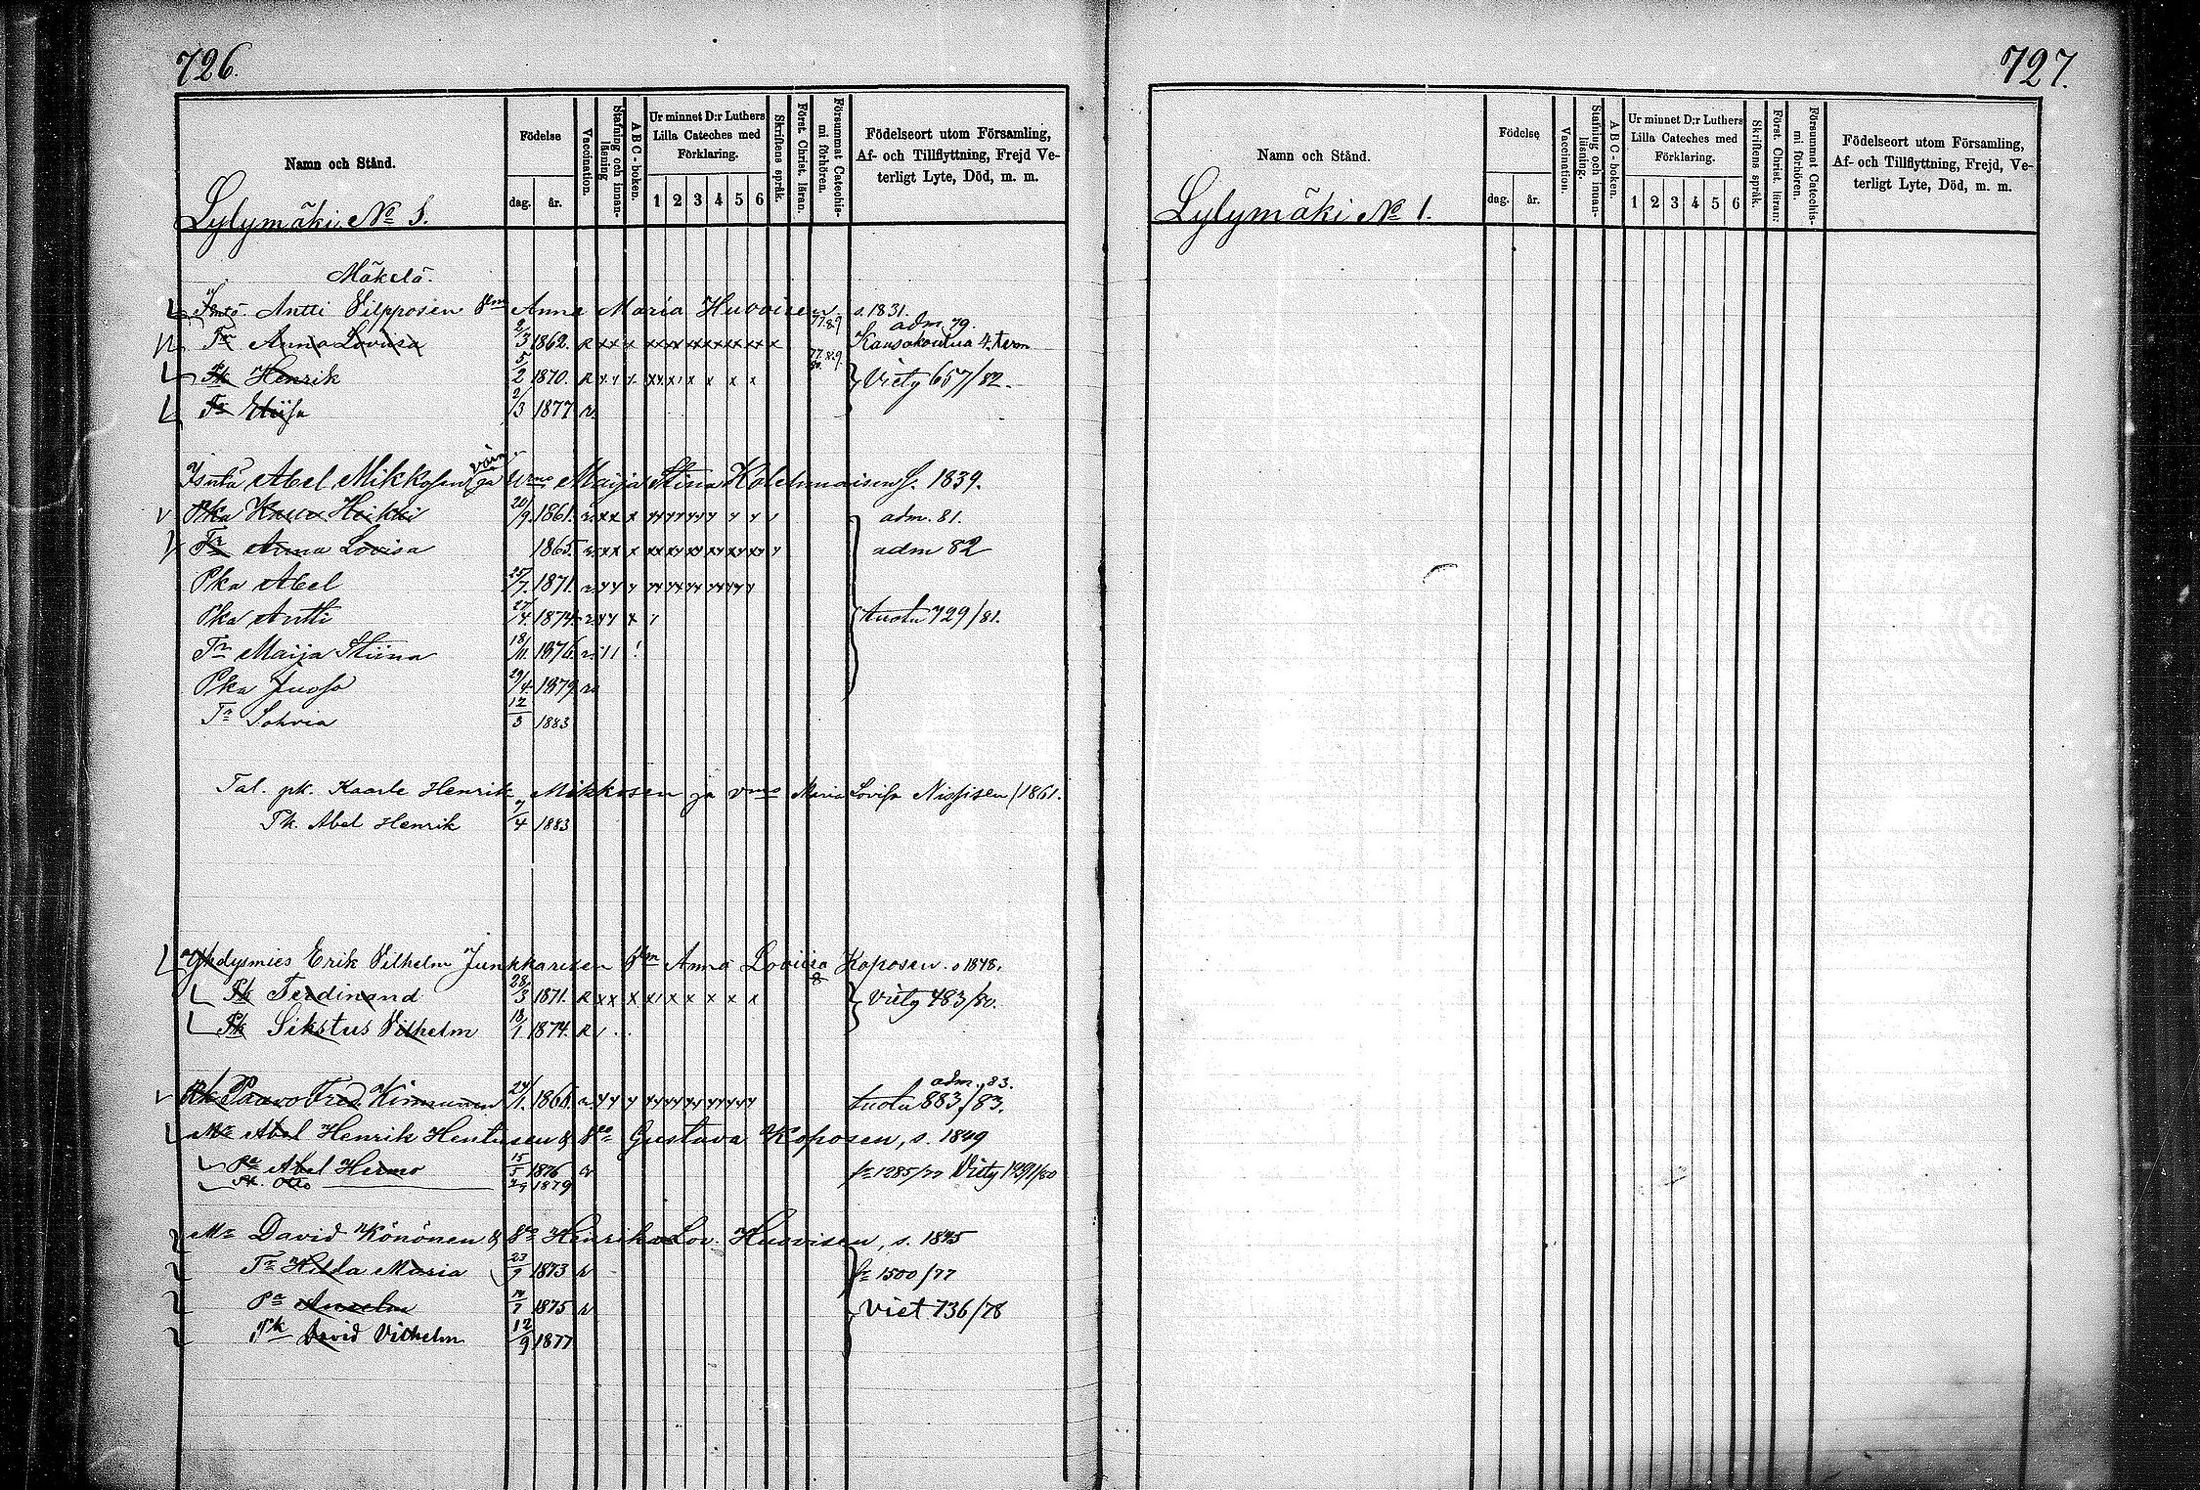 726.
Namn och Stånd.
Födelse
dag. år.
Vaccination.
Stafning och innan-läsning
ABC-boken.
Ur minnet D:r Luthers
Lilla Cateches med
Förklaring.
1 2 3 4 5 6
Skriftens språk.
Först. Christ. läran.
Försummat Catechis-
mi förhören.
Födelseort utom Församling,
Af- och Tillflyttning, Frejd Ve-
terligt Lyte, Död, m. m.
Lylymäki No 1.
Mäkelä.
Antti Vilpposen Anna Maria Huovisen s. 1831.
77.8.9 adm 79.
Tr Anna Lovisa 2/3 1862. Kansakoulua 4. term
77.8.9
Pk Henrik 5/2 1870. Viety 657/82.
Tr 2/3 1877
Abel Mikkosen ja Maija Stina Kolehmaisen s. 1839.
Pka Heikki 20/9 1861. adm. 81.
Tr Anna Lovisa 1865. adm 82
Pka Abel 25/7 1871.
Pka Antti 27/4 1874. tuotu 729/81.
Tr Maija Stiina 18/11 1876.
Pka Juoso 29/4 1879.
Tr Sohvia 12/3 1883
Tal. pk. Kaarle Henrik Mikkosen ja vmo Maria Lovisa Nissisen /1861.
Pk. Abel Henrik 7/4 1883
Yhdysmies Erik Vilhelm Junkkarisen Anna Loviisa Koposen. s 1848.
Pk Ferdinand 28/3 1871. Viety 483/80.
Pk Sikstus Vilhelm 18/1 1874.
adm. 83.
Pk Paavo Fred. Kinnunen 24/1 1866. tuotu 883/83.
Abel Henrik Hentusen & Gustava Koposen, s. 1849
Pa Abel Hermo 15/5 1876 1285/77 Viety 1491/80
Pk. Otto 1879
David Könönen & Henrika Lov. Huovisen, s. 1845
Tr Hilda Maria 23/9 1873 1500/77
Pa Anselm 1875 Viet 736/78
Pk David Vilhelm 12/9 1877
727.
Namn och Stånd.
Födelse
dag. år.
Vaccination.
Stafning och innan-läsning.
ABC-boken.
Ur minnet D:r Luthers
Lilla Cateches med
Förklaring.
1 2 3 4 5 6
Skriftens språk.
Först. Christ. läran.
Försummat Catechis-
mi förhören.
Födelseort utom Församling,
Af- och Tillflyttning, Frejd, Ve-
terligt Lyte, Död, m. m.
Lylymäki No 1.